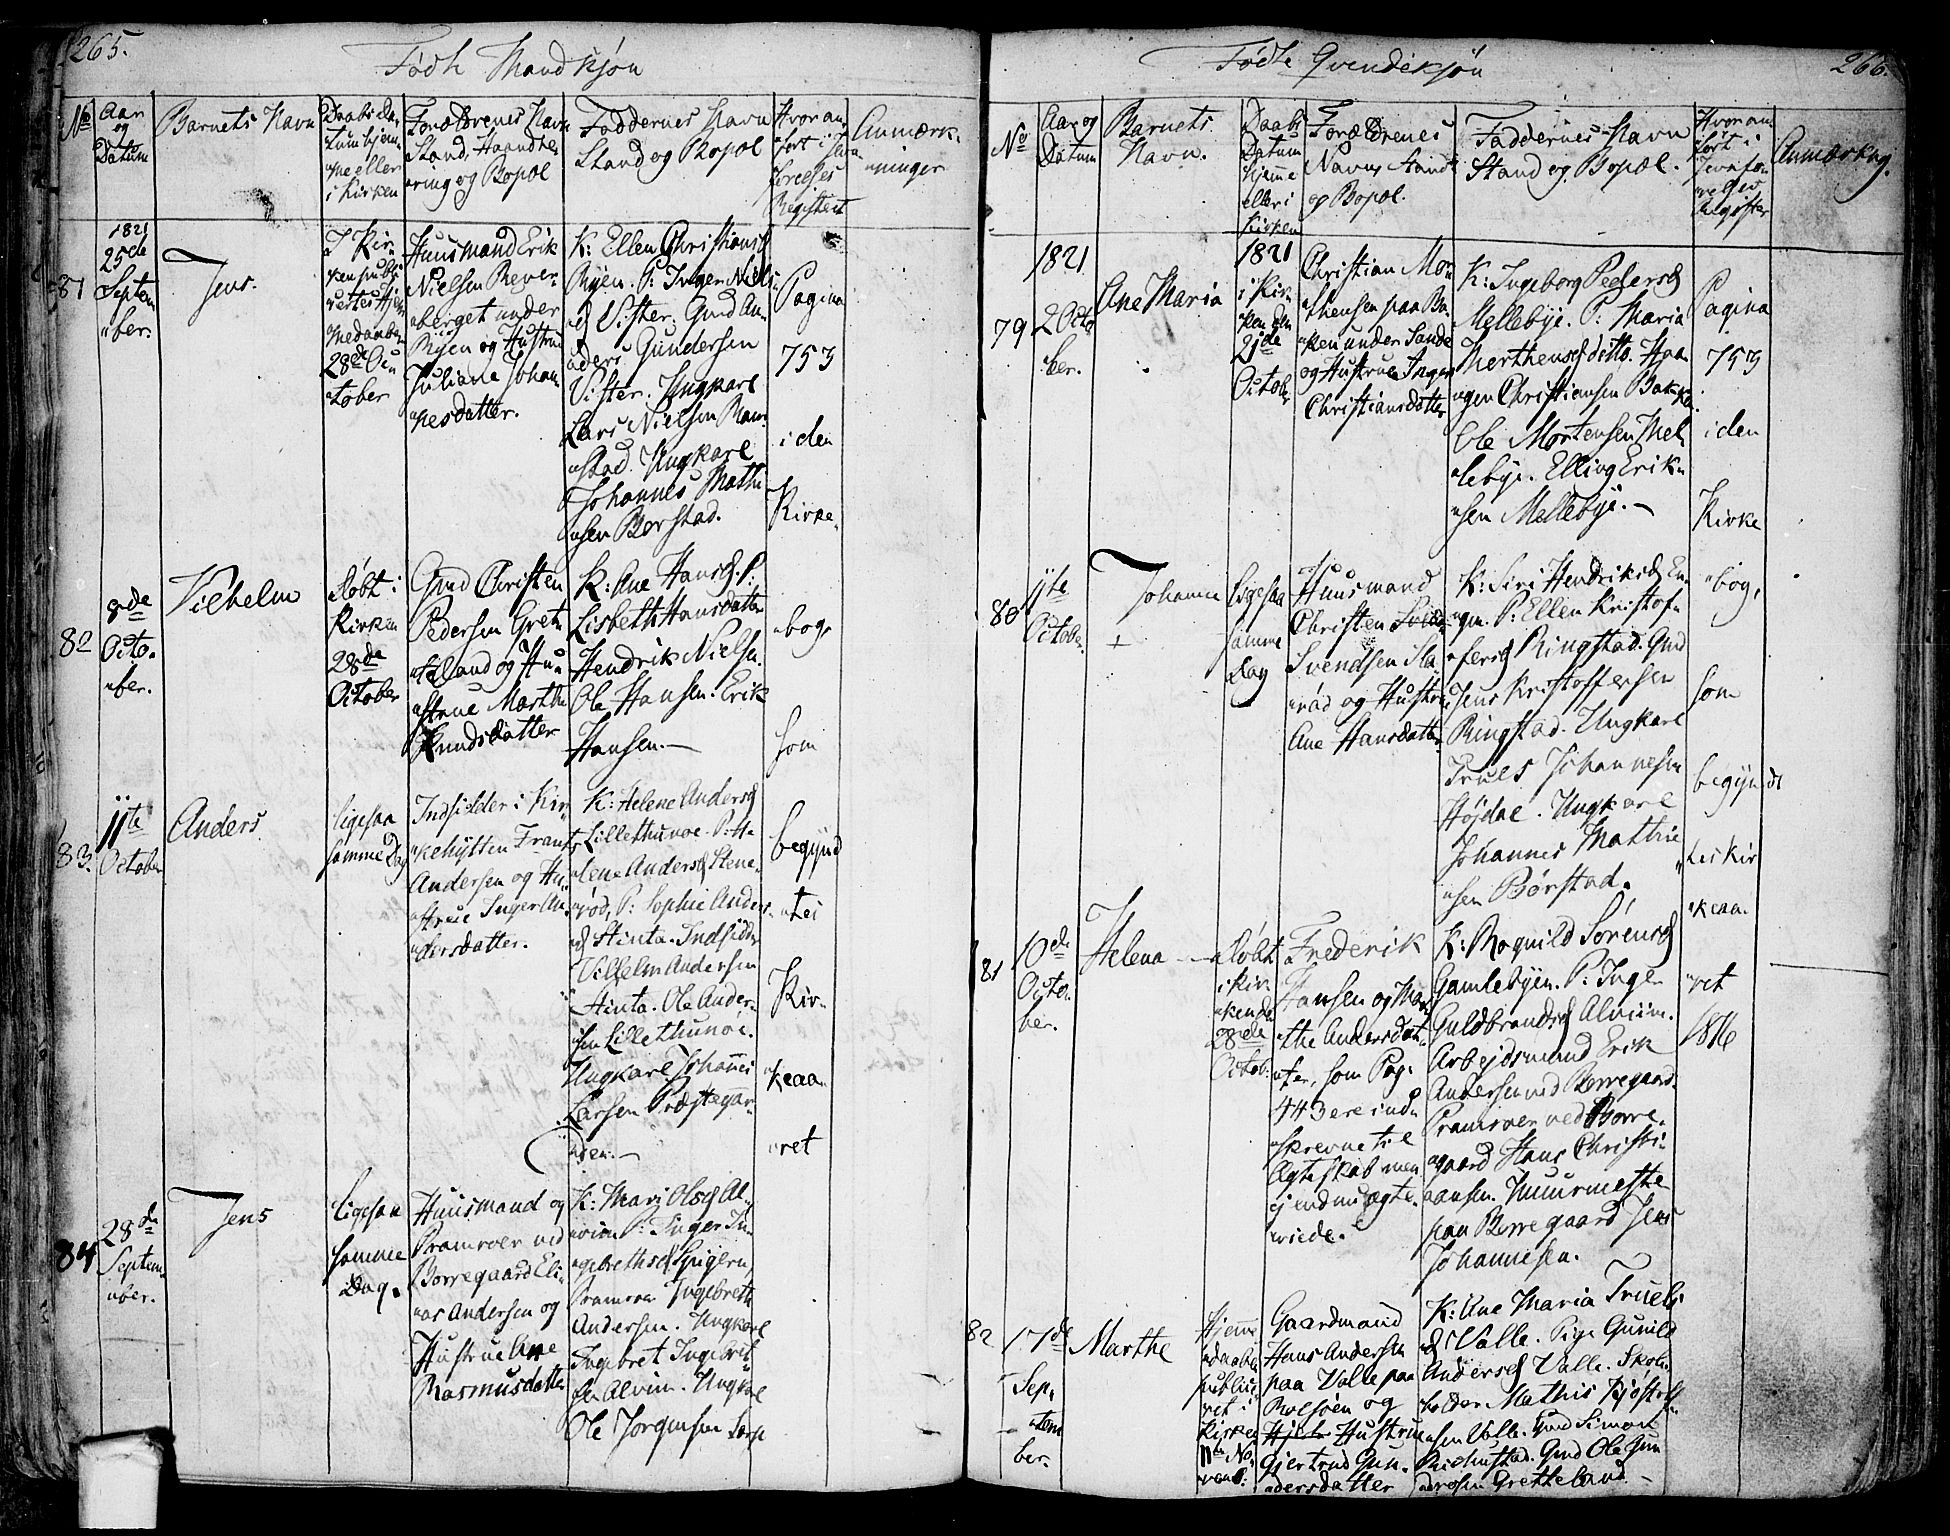 265.
Fødte Mandkjøn
No
Aar
og
Datum
Barnets Navn
Daabs Da-
tum hjem-
me eller
i Kirken
Forældrenes Navn
Stand, Haandte-
ring og Bopæl
Faddernes Navn
Stand og Bopæl
Hvor an-
ført i Jevn-
førelses
Registeret
Anmærk-
ninger
81
1821
25de
Septem-
ber.
Jens.
I Kir-
ken publi-
28de Oc-
tober
Huusmand Erik
Nielsen Rever-
berget under
Ryen og Hustrue
Juliane Johan-
nesdatter.
K: Ellen Christiansd
Ryen. P: Inger Niels-
d Vister. Gmd An-
ders Gundersen
Vister. Ungkarl
Lars Nielsen Ram-
stad. Ungkarl
Johannes Mathi-
sen Børstad.
Pagina
753
i den
Kirke-
bog
som
begynd-
tes
Kir-
keaa-
ret
82
8de
Octo-
ber.
Vilhelm
døbt i
Kirken
28de
October
Gmd Christen
Pedersen Gret-
land og Hu-
strue Marthe
Knudsdatter
K: Ane Hansd. P:
Lisbeth Hansdatter
Hendrik Nielsen.
Ole Hansen. Erik
Hansen.—
83.
11te
October
Anders
ligesaa
samme Dag
Indsidder i Kir-
kehytten Frants
Andersen og Hu-
strue Inger An-
dersdatter.
K: Helene Andersd
Lillethunøe. P: He-
lene Andersd Stene-
rød, P: Sophie Anders-
d Stinta. Indsidder
Vilhelm Andersen
Stinta. Ole Ander-
sen Lillethunøe.
Ungkarl Johannes
Larsen Præstegaar-
den.—
84
28de
Septem-
ber.
Jens
ligesaa
samme
Dag.
Huusmand og
Pramroer ved
Borregaard Eli-
as Andersen og
Hustrue Ane
Rasmusdatter
K: Mari Olsd Al-
viim P: Inger In-
gebrethsd Spigern,
Pramroer Ingebreth
Andersen. Ungkarl
Ingebret Ingebret-
sen Alviim. Ungkarl
Ole Jørgensen Sarp
266.
Fødte Qvendekjøn
No
Aar og
Datum
Barnets
Navn.
Daabs
Datum
hjemme
eller i
Kirken
Forældrenes
Navn, Stand
og Bopæl.
Faddernes Navn
Stand og Bopæl.
Hvor an-
ført i
Jevnfø-
relses
Register
Anmærkng.
79
1821
2 Octo-
ber.
Ane Maria
1821
i Kir-
ken den
21de
October
Christian Mor-
thensen paa Ba-
ken under Sande
og Hustrue Inger
Christiansdatter
K: Ingeborg Pedersd
Mellebye. P: Maria
Morthensd ditto. Haa-
gen Christiansen Bakke
Ole Mortensen Mel-
lebye. Elling Erik-
sen Mellebye.—
Pagina
753
i den
Kirke
bog,
som
begynd-
tes Kir-
keaa-
ret
1816
80
11te
October
+
Johanne
ligesaa
samme
Dag
Huusmand
Christen
Svendsen Sla-
rød og Hustrue
Ane Hansdatter
K: Siri Hendriksd En-
gen. P: Ellen Kristof-
fersd Ringstad. Gmd
Jens Kristoffersen
Ringstad. Ungkarl
Truels Johannesen
Højdal. Ungkarl
Johannes Mathie-
sen Børstad.
81
10de
Octo-
ber.
Helena
døbt
i Kir-
ken d
28de
Octob.
Frederik
Hansen og Mar-
the Andersdat-
ter, som Pag:
443 ere ind-
skrevne til
Ægteskab men
ej endnu ægte-
viede.
K: Rognild Sørensd
Gamlebyen. P: Inge-
Guldbrandsd Alviim.
Arbejdsmand Erik
Andersen ved Borregaard.
Pramroer ved Borre-
gaard Hans Christi-
ansen. Muurmester
paa Borregaard Jens
Johannesen.
82
17de
Sep-
tem
ber.
Marthe
Hjemme
daaben
publice-
ret i
Kirken
11te No-
vemb:
Gaardmand
Hans Andersen
paa Valle paa
Rolsøen og
Hustrue
Gjertrud Gun-
dersdatter
K: Ane Maria Truels-
d Valle. Pige Gunild
Andersd Valle. Skole-
holder Mathis Kjøstel-
sen Valle. Gmd Simon
Gmd Ole Gun-
dersen Gretteland.—